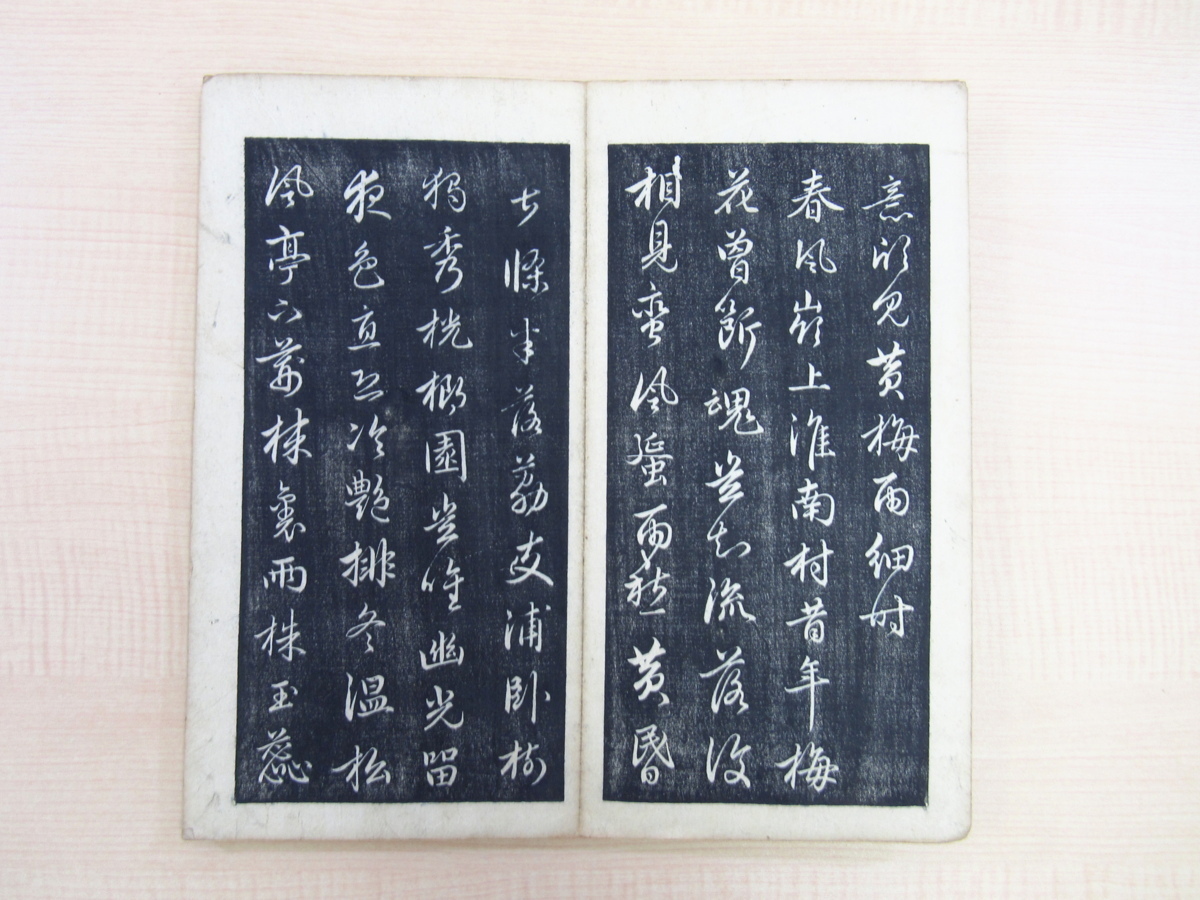 意見黃梅雨細時
春風嶺上淮南村昔年梅
花曾斷魂豈知流落復
相見蠻風蜑雨愁黃昏
長條半落荔支浦臥樹
獨秀桄榔園豈唯幽光留
夜色直恐冷艷排冬溫松
風亭下荊棘裏兩株玉蕊